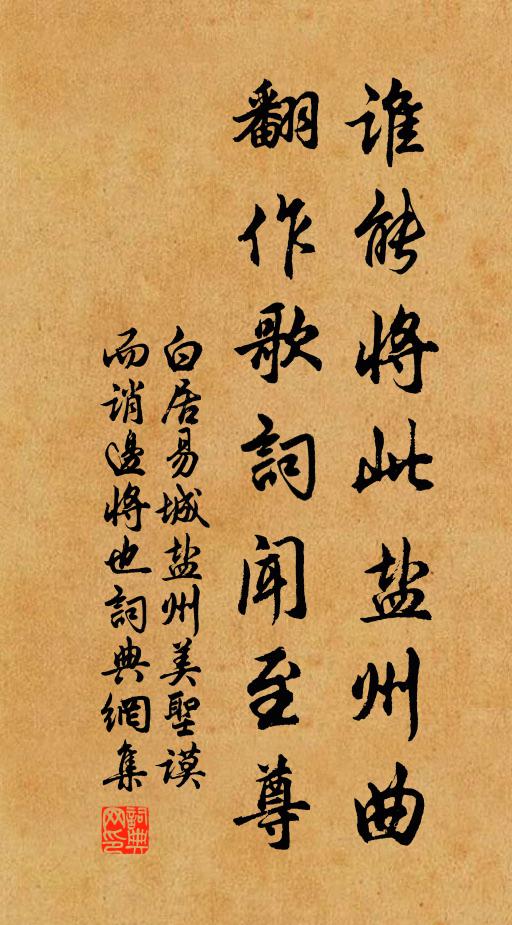 谁能将此盐州曲
翻作歌詞闻至尊
白居易城盐州美聖谟
而诮邊将也詞典網集
詞典网印